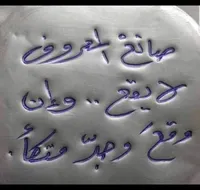 صانع المعروف
لا يقع .. وإن
وقعَ وجدَ متكأً.